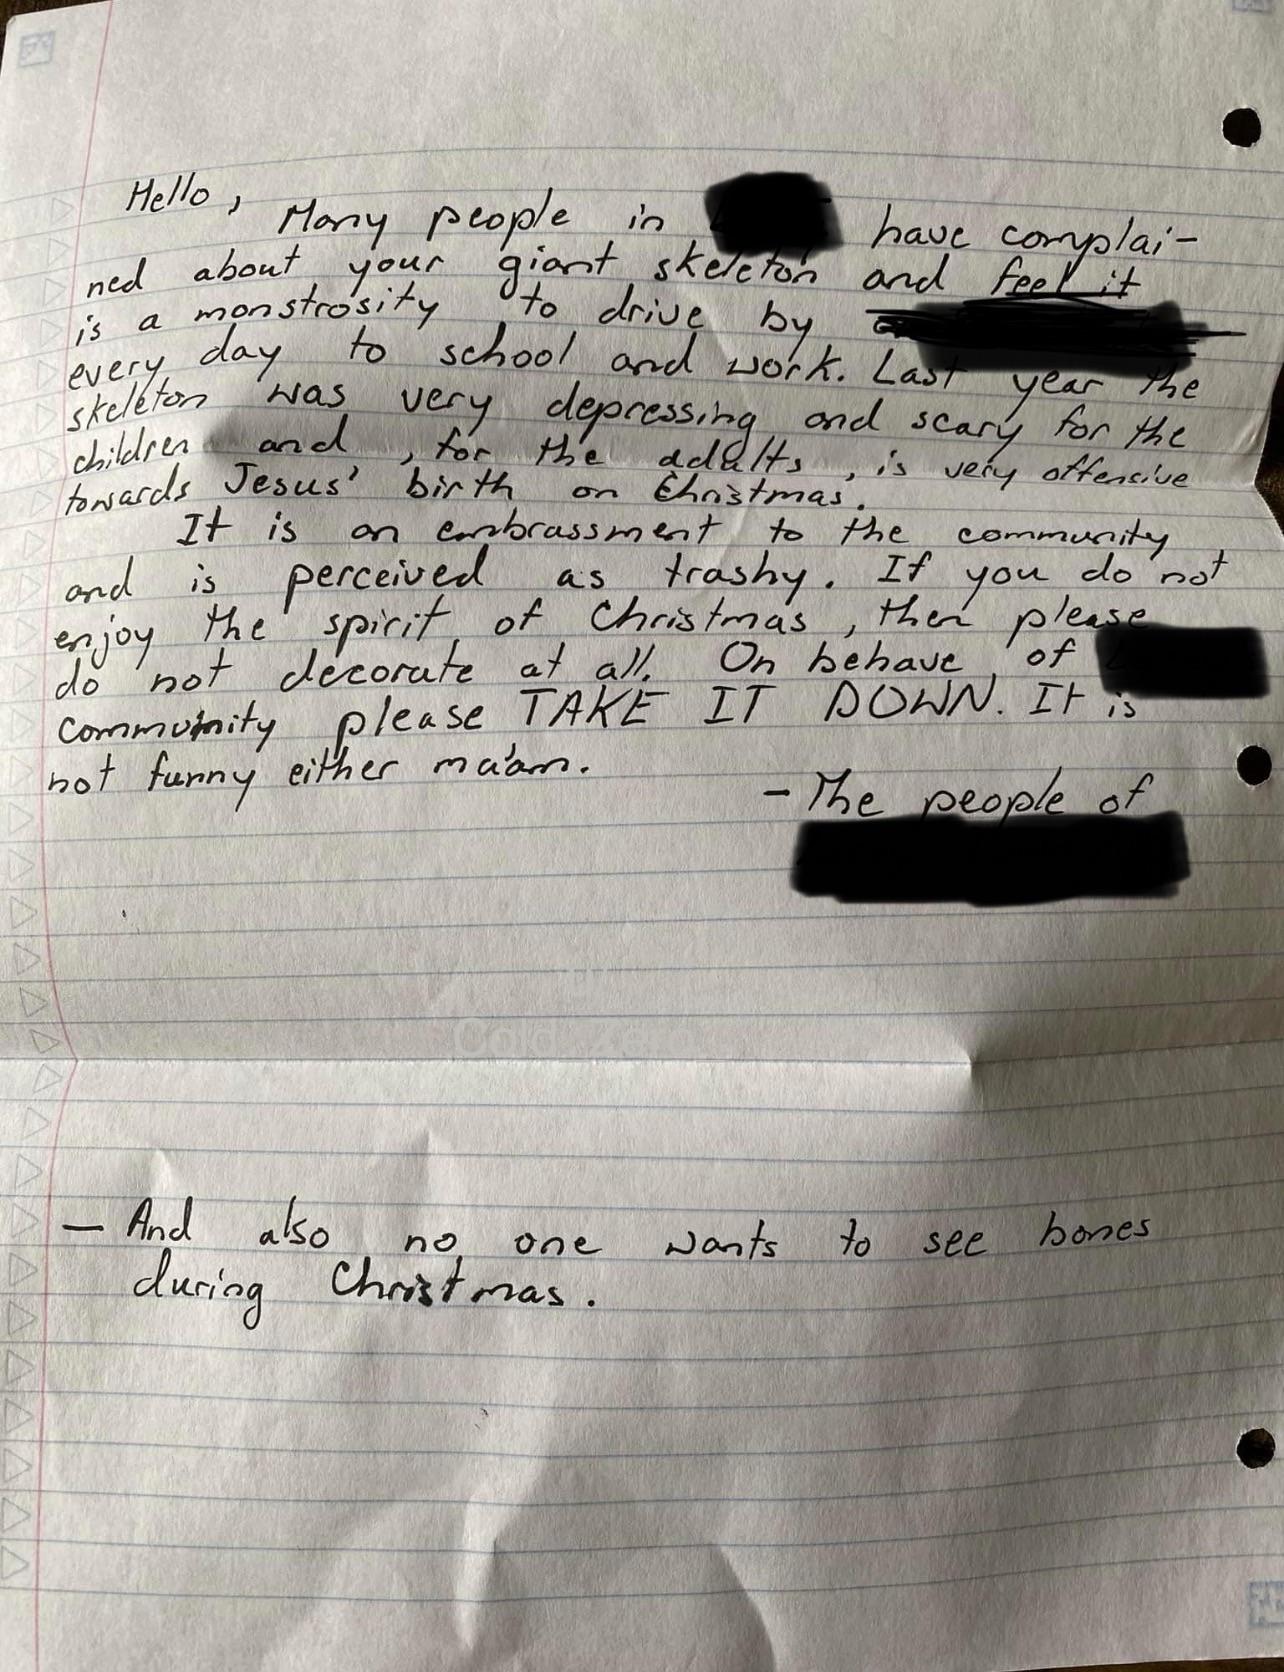 Hello,
Many people in have complai-
ned about your giant skeleton and feel it
is a monstrosity to drive by
every day to school and work. Last year the
skeleton was very depressing and scary for the
children and , for the adults, is very offensive
towards Jesus' birth on Christmas.
It is an embrassment to the community
and is perceived as trashy. If you do not
enjoy the spirit of Christmas, then please
do not decorate at all. On behave of
community please TAKE IT DOWN. It is
not funny either ma'am.
- The people of
Cold
— And also no one wants to see bones
during Christmas.